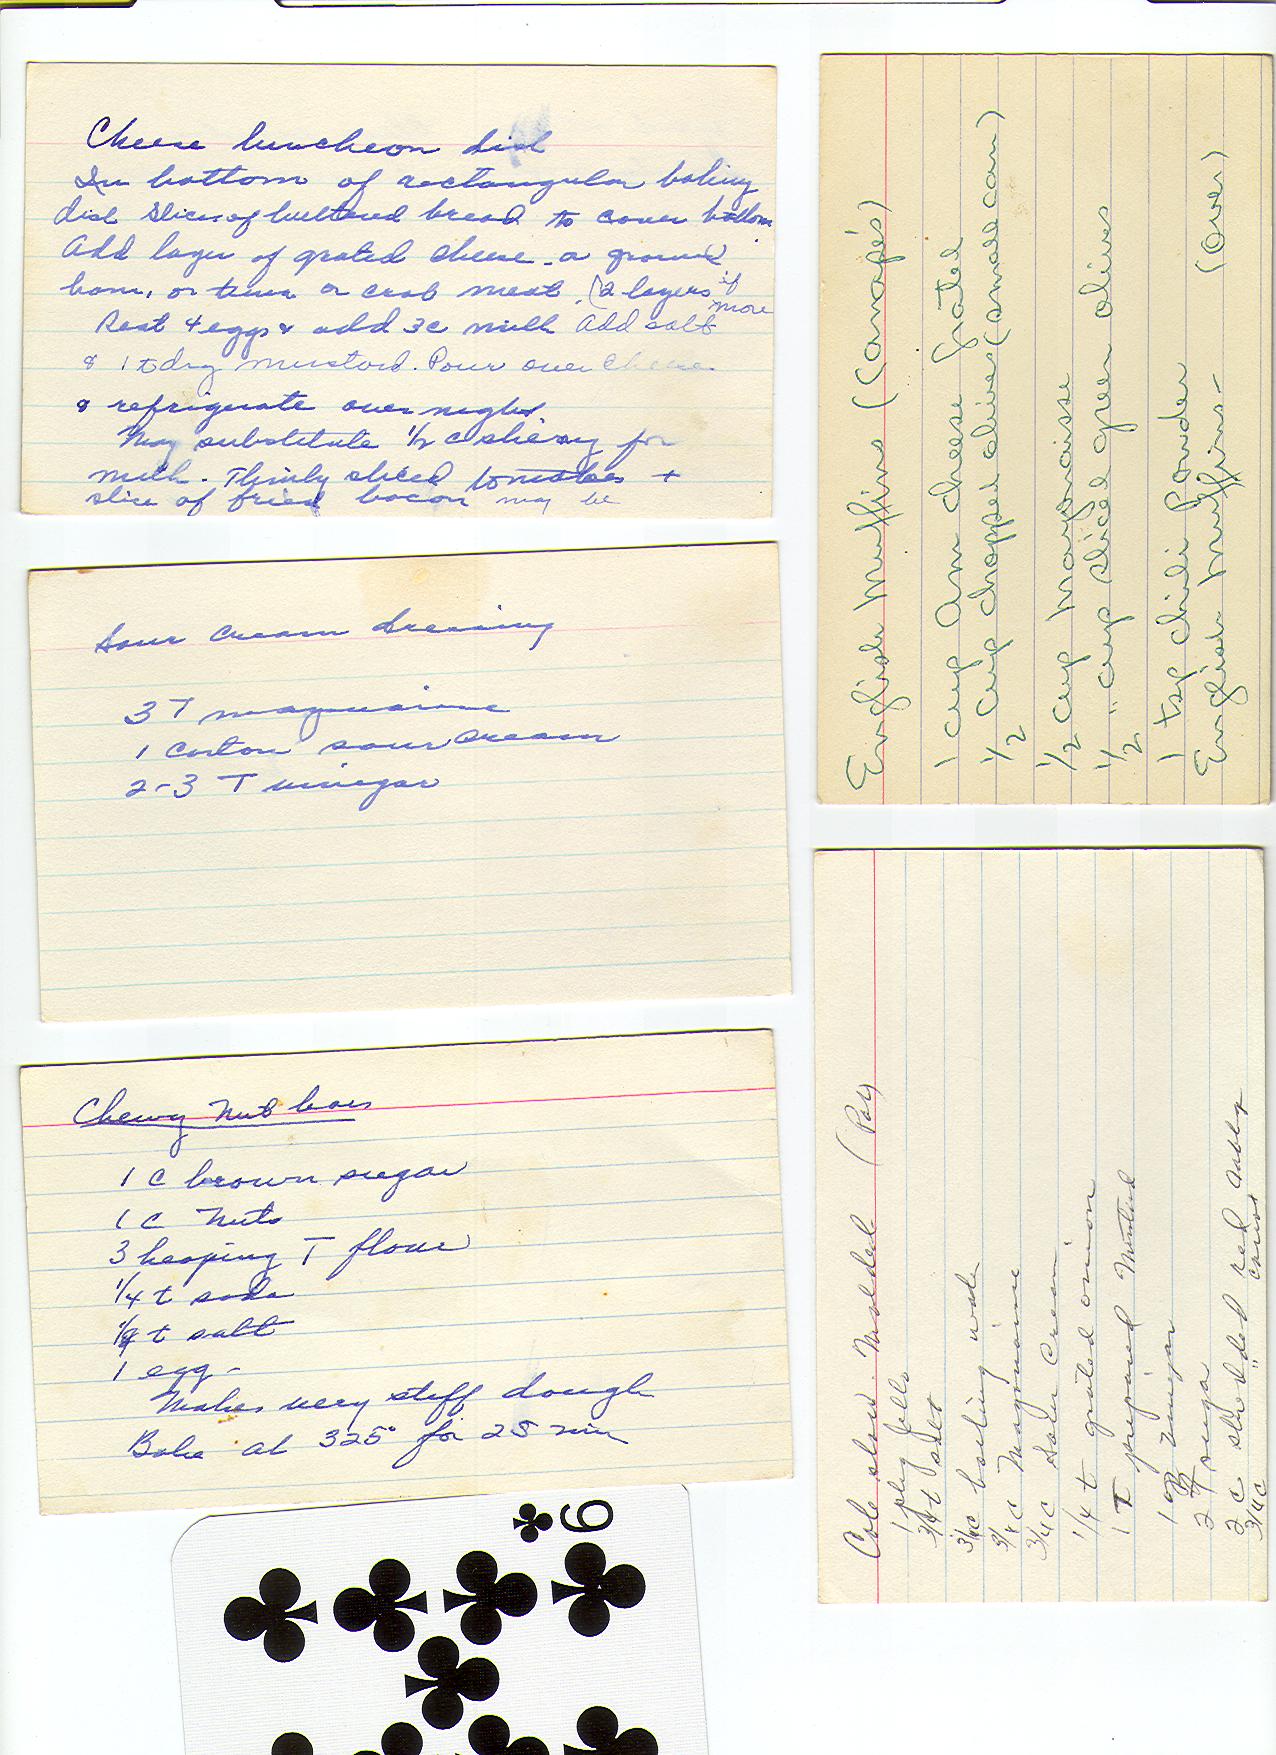 Cheese luncheon dish
In bottom of rectangular baking
dish slices of buttered bread to cover bottom
Add layer of grated cheese - a ground
ham, or tuna or crab meat. (2 layers if
more
Beat 4 eggs & add 3c milk Add salt
& 1 t dry mustard. Pour over cheese
& refrigerate over night.
May substitute 1/2 c sherry for
milk. Thinly sliced tomatoes +
slice of fried bacon may be
Sour cream dressing
3 T mayonnaise
1 carton sour cream
2-3 T vinegar
Chewy Nut bars
1 C brown sugar
1 C Nuts
3 heaping T flour
1/4 t soda
t salt
1 egg -
Makes very stiff dough
Bake at 325° for 25 min
9
English Muffins (Canapés)
1 cup Am cheese grated
1/2 cup chopped olives (small can)
1/2 cup Mayonaisse
1/2 " cup sliced green olives
1 tsp chili Powder
English Muffins -
(over)
Cole slaw. Molded (Poly
1 pkg jello
3/4 t salt
3/4c boiling water
3/4c Mayonaise
3/4c Sour Cream
1/4 t grated onion
1 T prepared Mustard
1 vinegar
2 T sugar
2 c shredded red cabbage
3/4c " carrot